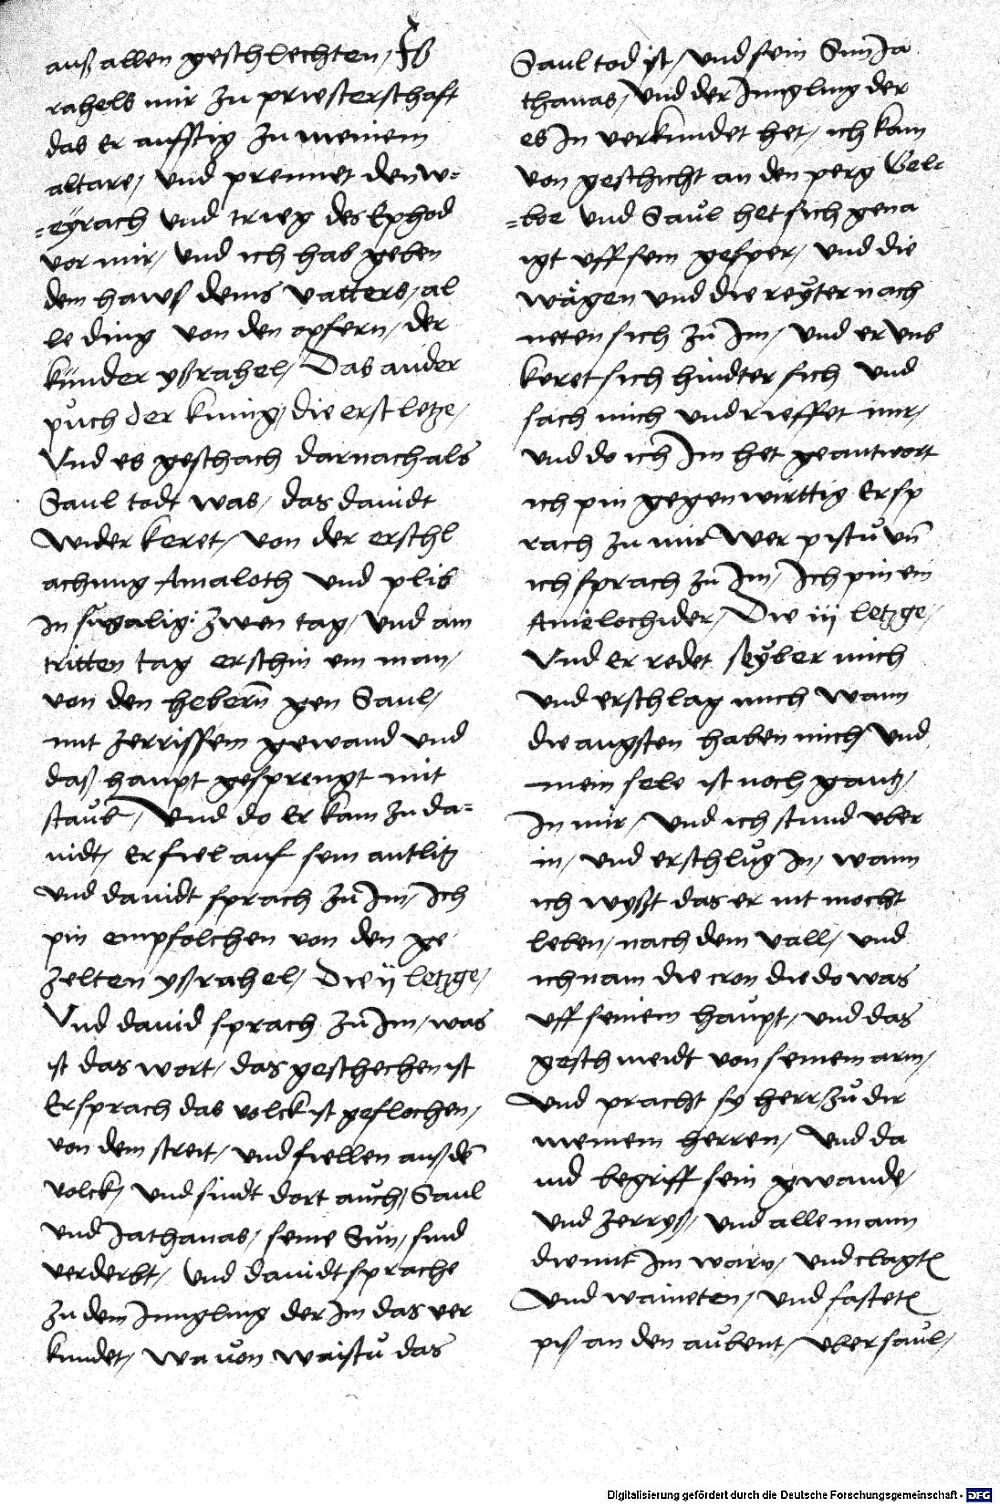 auß allen geschlechten/ Iß
rahels mir zu priesterschaft
das er auffstig zu meinem
altare/ und prennet den w=
=eÿrach und trieg des Ephod
vor mir/ und ich hab geben
dem haws deins vatters/ al
le ding von den opfern/ der
künder yßrahel/ Das ander
půch der kunig/ die erst letze/
Vnd es geschach darnach als
Saul todt was/ das dauidt
wider keret/ von der erschl
achung Amaloth und plib
In sigalig: zwen tag/ und am
tritten tag erschin ein man/
von den hebern̄ gen Saul/
mit zerrissem gewand und
daß haupt gesprengt mit
staůb/ Und do Er kam zu da=
uidt/ er fiel auf sein antlitz
und dauidt sprach zů Im/ Ich
pin empfolchen von den ge
zelten yßrahel/ Die ij letzge/
Vnd dauid sprach zů Im/ was
ist das wort/ das geschechen ist
Er sprach das volck ist geflochen/
von dem streit/ und fiellen auß dē
volck/ und sindt dort aůch/ Saul
und Jathanas/ seine Sůn/ sind
verderbt/ Und dauidt sprache
zu dem Jungling der im das ver
kundet/ wa uon waistů das
Saul tod ist/ und sein Sun Ja
thanas/ und der Jungling der
es In verkundet het/ ich kam
von geschicht an den perg Gel=
=boe und Saůl het sich gena
igt uff sein gesper/ und die
wägen und die reÿter nach
neten sich zů Im/ und er umb
keret sich hindter sich und
sach mich und rieffet mir/
und do ich Im het geantwort
ich pin gegenwirttig Er sp
rach zu mir wer pistu vn̄
ich sprach zů Im/ Ich pin ein
Amelochider/ Die iij letzge/
Vnd Er redet seÿber mich
und erschlag mich wann
die angsten haben mich/ und
mein sele ist noch gantz/
In mir/ und ich stund uber
in/ und erschlůg In/ wann
ich wyßt das er nit mocht
leben/ nach dem vall/ und
ich nam die cron die do was
uff seinem haůpt/ und das
geschmeidt von seinem arm/
und pracht sy herr/ zů dir
meinem herren/ Und da
uid begriff sein gwande/
und zerryß/ und alle mann
die mit Im warn/ und clagtē
und waineten/ und fastetē
piß an den aůbent/ uber saůl/
Digitalisierung gefördert durch die Deutsche Forschungsgemeinschaft - DFG